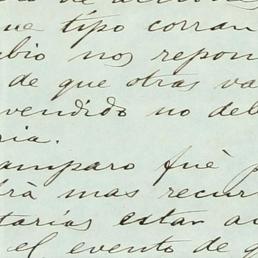 ue tipo corran
bio nos repon
de que otras va
vendido no deb
ria.
amparo fuè p
drà mas recur
tarias estan a
el evento de q